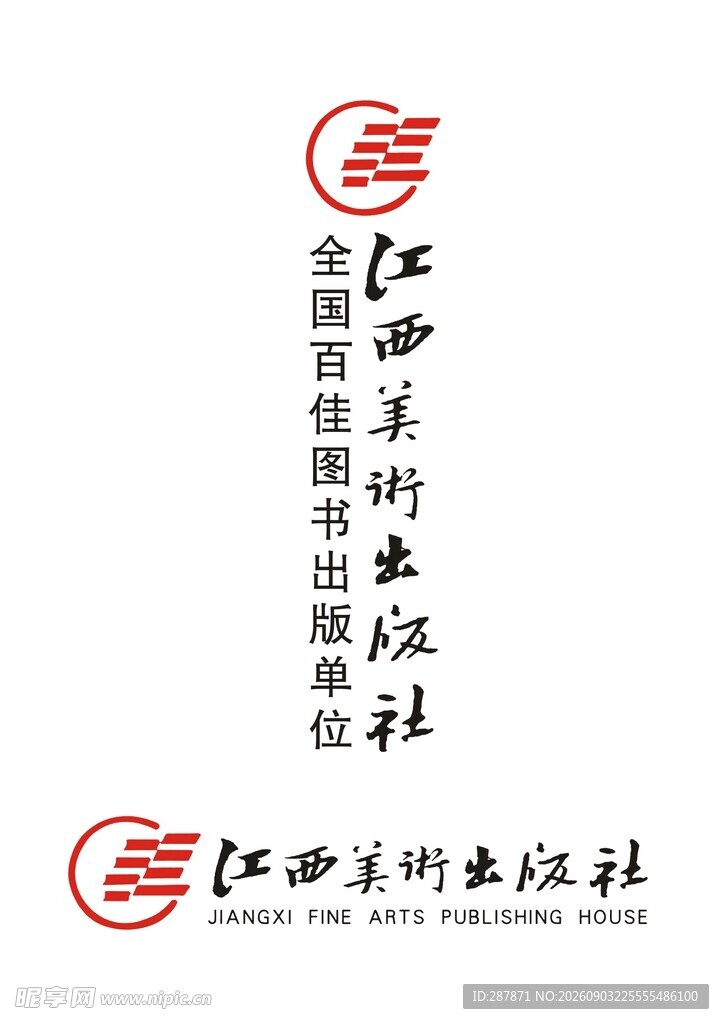 江西美術出版社
全国百佳图书出版单位
江西美術出版社
JIANGXI FINE ARTS PUBLISHING HOUSE
昵享网 www.nipic.cn
ID:287871 NO:20260903225555486100